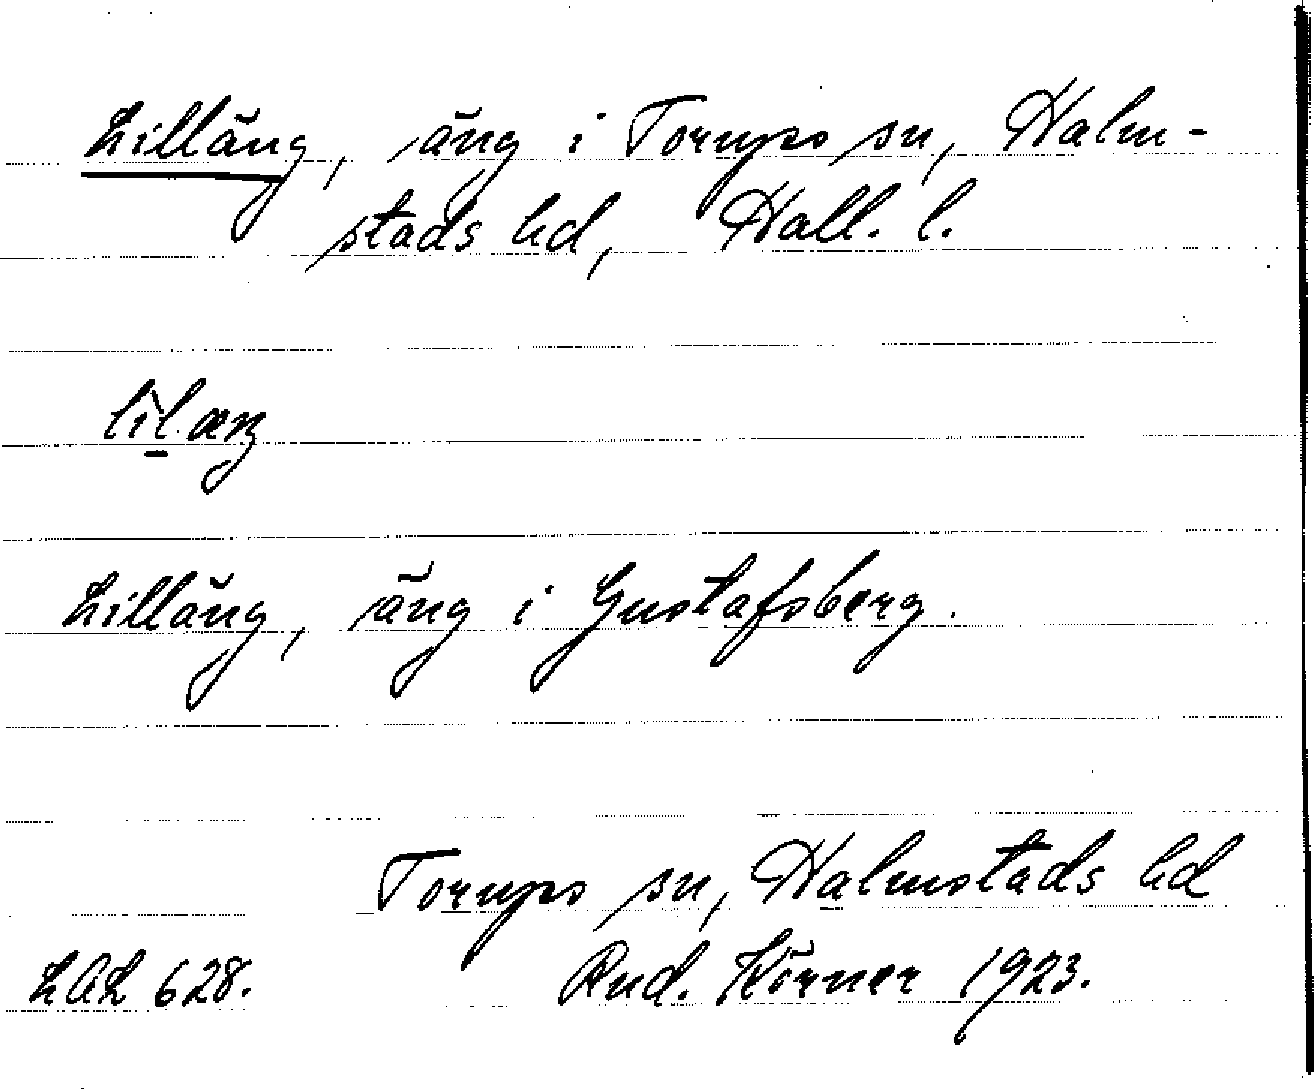 Lilläng, äng i Torups sn, Halm-
stads hd, Hall. l.
Lilläng, äng i Gustafsberg.
Torups sn, Halmstads hd
LAL 628. Rud. Körner 1923.